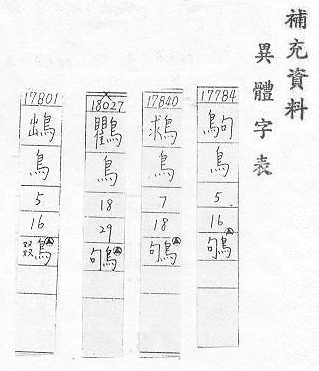 補充資料
異體字表
17784
鳥
5
16
鴝
17840
鳥
7
18
鴝
18027
鸜
鳥
18
29
鴝
17801
鳥
5
16
鵽